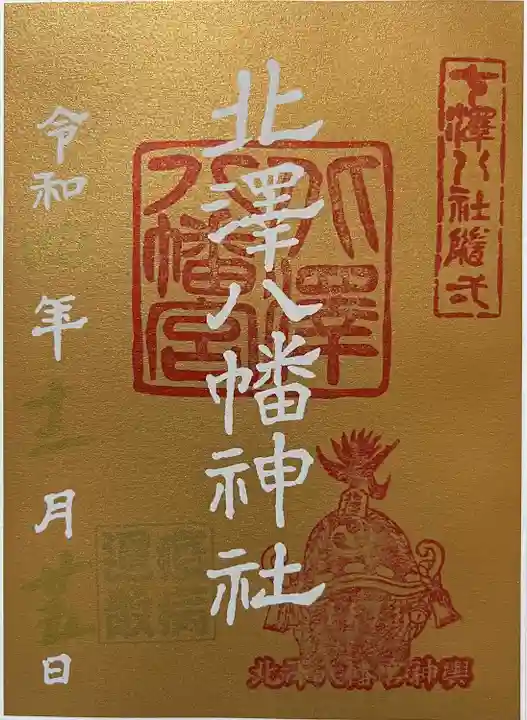 七澤八社隨弌
北澤八幡神社
北澤八幡宮
疫病退散
北澤八幡宮神輿
令和 年十二月十五日